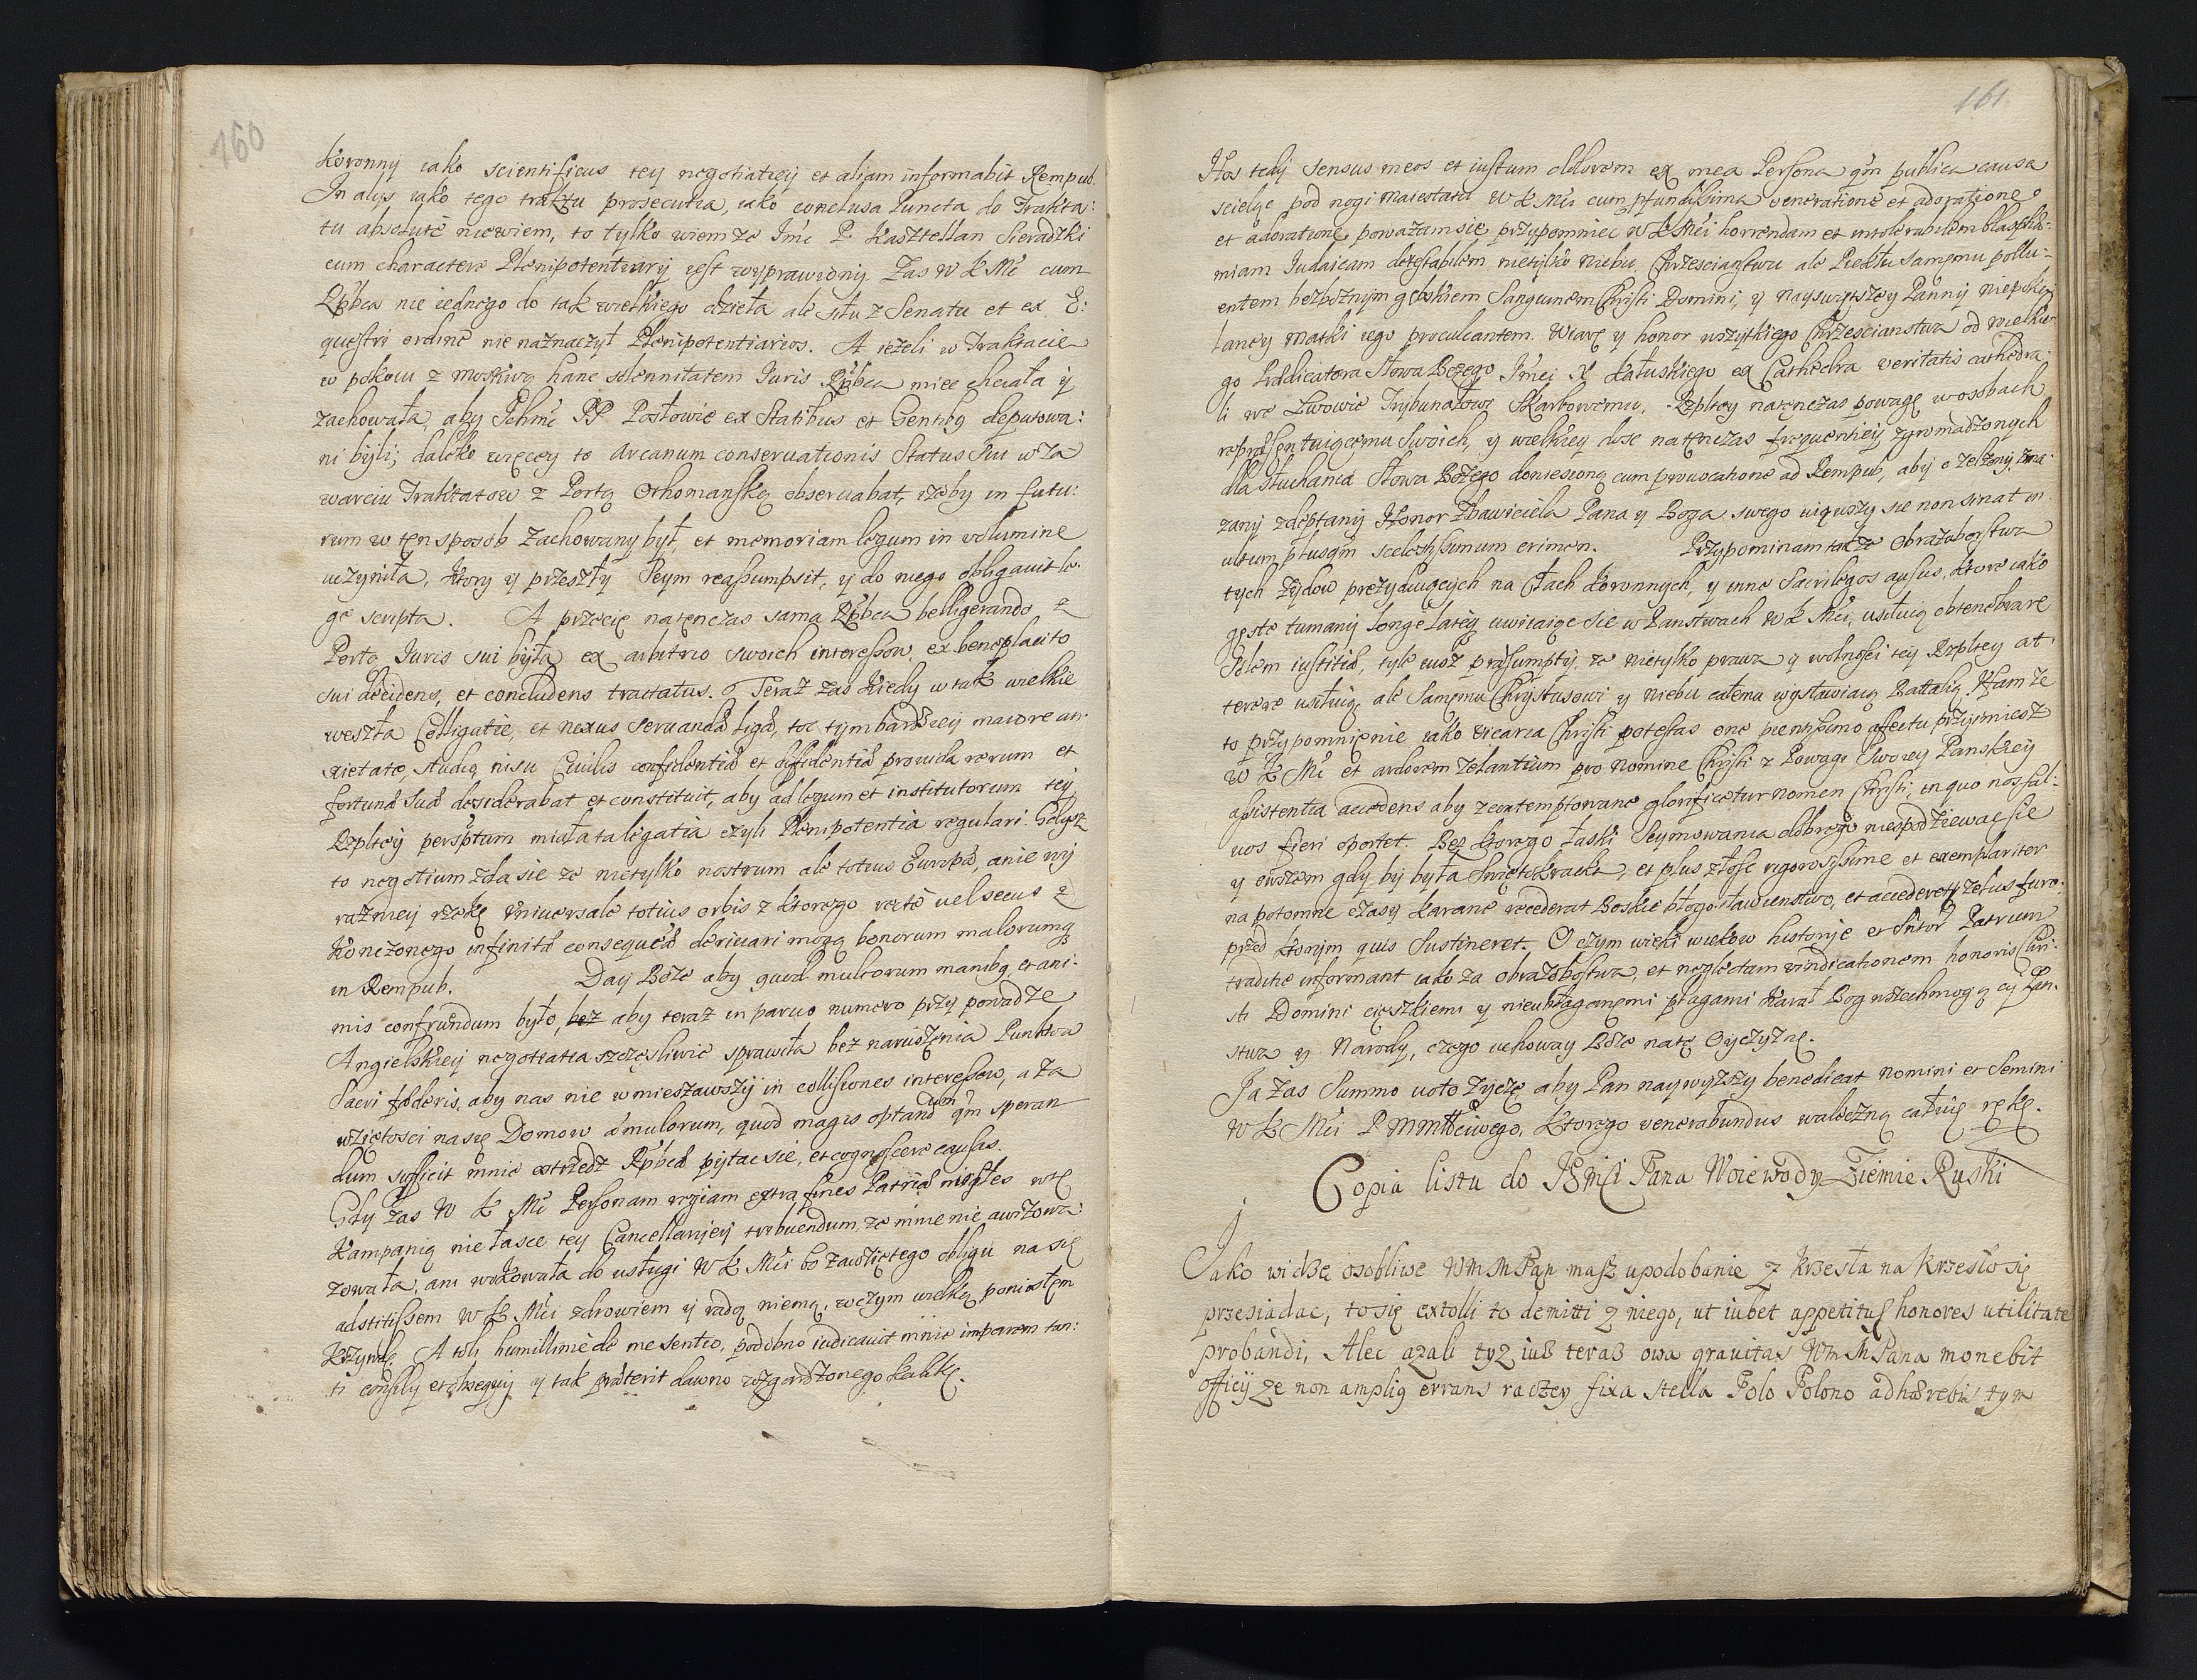 160
Koronny iako scientificus tey negotiatiey et aliam informabit Rempub.
In alys iako tego traktu prosecutia, iako conclusa Puncta do Trakta:
tu absolutè niewiem, to tylko wiem ze Imć P. Kasztellan Sieradzki
cum charactere Plenipotentiarij iest wyprawiony. Zas W K Mć cum
Rpbca nie iednego do tak wielkiego dzieła ale situ z Senatu et ex E:
questri ordine nie naznaczył Plenipotentiarios. A ieżeli w Traktacie
w pokoiu z Moskwą hanc solennitatem Iuris Rpbca miec chciała y
zachowała, aby Ichmć PP Posłowie ex Statibus et Gentibg deputowa:
ni byli; daleko więcey to Arcanum conseruationis Status Sui w za
warciu Traktatow z Portą Othomańską obseruabat, izeby in futu:
rum w ten sposob zachowany był, et memoriam legum in volumine
uczyniła, ktory y przeszły Seym reassumpsit, y do niego obligauit le:
ge scripta. A przecię natenczas sama Rpbca belligerando z
Portą Iuris sui była ex arbitrio swoich interessow, ex beneplacito
sui decidens, et concludens tractatus. Teraz zas kiedy w tak wielkie
weszła Colligatie, et nexus seruandæ ligæ, toc tym bardziey maiore an:
xietate, studio, nisu Ciuilis confidentiæ et diffidentiæ prouida rerum et
fortunæ suæ desiderabat et constituit, aby ad legum et institutorum tey
Rzpltey persptum miała ta legatia czyli Plenipotentia regulari. Gdysz
to negotium zda sie ze nietylko nostrum ale totius Europæ, a nie wy
razniey rzekę Vniuersale totius orbis z ktorego rectè uel secus z
konczonego infinitæ consequæ deriuari mogą bonorum malorumq;
in Rempub. Day Boze aby quod multorum manibg, et ani:
mis confruendum było, bez aby teraz in paruo numero przy powadze
Angielskiey negotiatia szczęsliwie sprawiła bez naruszenia Punktow
Sacri fœderis, aby nas nie wmieszawszy in collisiones interessow, a za
wziętosci na się Domow æmulorum, quod magis optandum qm speran
dum sufficit mnie extrzedz Rpbcæ pytac sie, et cognoscere causas.
Gdy zas W K Mć Personam regiam extra fines Patriæ wtę
Kampanią nie łasce tey Cancellaryey tribuendum, ze mnie nie awizowa:
zowała, ani wokowała do usługi W K Mći bo zawziętego obligu na się
adstitissem W K Mći zdrowiem y radą niemą, w czym wielką poniosłem
krzywdę. A toli humillimè de me sentio, podobno iudicauit mnie imparem tan:
ti consily et obsequy y tak præterit dawno wzgardzonego kalikę.
161
Hos tedy sensus meos et iustum dolorem ex mea Persona qm publica causa
scielę pod nogi Maiestatu W K Mći cum pfundissima veneratione et adoratione
et adoratione poważam sie przypomniec W K Mći horrendam et intolerabilem blasphe:
miam Iudaicam detestabilem nietylko niebu, Chrzescianstwu ale Piekłu samemu pollu:
entem bezbożnym Sanguinem Christi Domini, y Nayswiętszey Panny Niepoka
laney Matki iego proculcantem. Wiarę y honor wszytkiego Chrzescianstwa od wielkie
go Prædicatora Słowa Bożego Imći X Kałuskiego ex Cathedra veritatis cathedra
li we Lwowie Trybunałowi Skarbowemu, Rzpltey natenczas powagę w osobach
repræsentuiącemu swoich, y wielkiey dosc natenczas frequentiey zgromadzonych
dla słuchania Słowa Bożego doniesioną cum prouocatione ad Rempub, aby o zelżony, zma:
zany zdeptany Honor Zbawiciela Pana y Boga swego uiąwszy sie non sinat in
ultum plusqm scelestissimum crimen. Przypominam także Obrazuborstwa
tych Żydow przezywaiących na Cłach Koronnych, y inne Sacrilegos ausus, ktore iako
gęste tumany longe lateq uwiiaiąc sie w Panstwach W K Mći, usiłuią obtenebrare
Solem iustitiæ, tyle iusz præsumpty, ze nietylko prawa y wolności tey Rzpltey at:
terere usiłuią, ale Samemu Chrystusowi y niebu całemu wystawiaią Batalią. Ufam ze
to przypomnienie iako vicaria Christi potestas one pientissimo affectu przyimiesz
W K Mć et ardorem zelantium pro Nomine Christi z Powagi Swoiey Panskiey
assistentia accedens aby zcontemptowane glorificetur nomen Christi, in quo nos sal:
uos fieri oportet. Bez ktorego łaski Seymowania dobrego niespodziewac sie
y owszem gdy by była Swiętokracka, et plus złosc rigorosissime et exemplariter
na potomne czasy karane recederat Boskie błogosławienstwo, et accederet zelus furo:
przed ktorym quis sustineret. O czym wieki wiekow historyie et Sntor Patrum
traditio informant iako za obrazobostwa, et neglectam vindicationem honoris Chri:
sti Domini cięszkiemi y nieubłaganemi plagami karał Bog wszechmogący Pan:
stwa y Narody, czego uchoway Boze natę Oyczyznę.
Ja zas Summo uoto życzę aby Pan naywyższy benedicat Nomini et Semini
W K Mći P Mmttciwego, ktorego venerabundus waleczną całuię rękę.
Copia listu do JEMsci Pana Woiewody Ziemie Ruski
Jako widzę osobliwe WmMPan masz upodobanie z krzesła na krzesło się
przesiadac, to się extolli to demitti z niego, ut iubet appetitus honores utilitate
probandi, Alec azali tyz iuż teraz owa grauitas WmMPana monebit
officij ze non amplig errans raczey fixa stella Polo Polono adhærebis tym